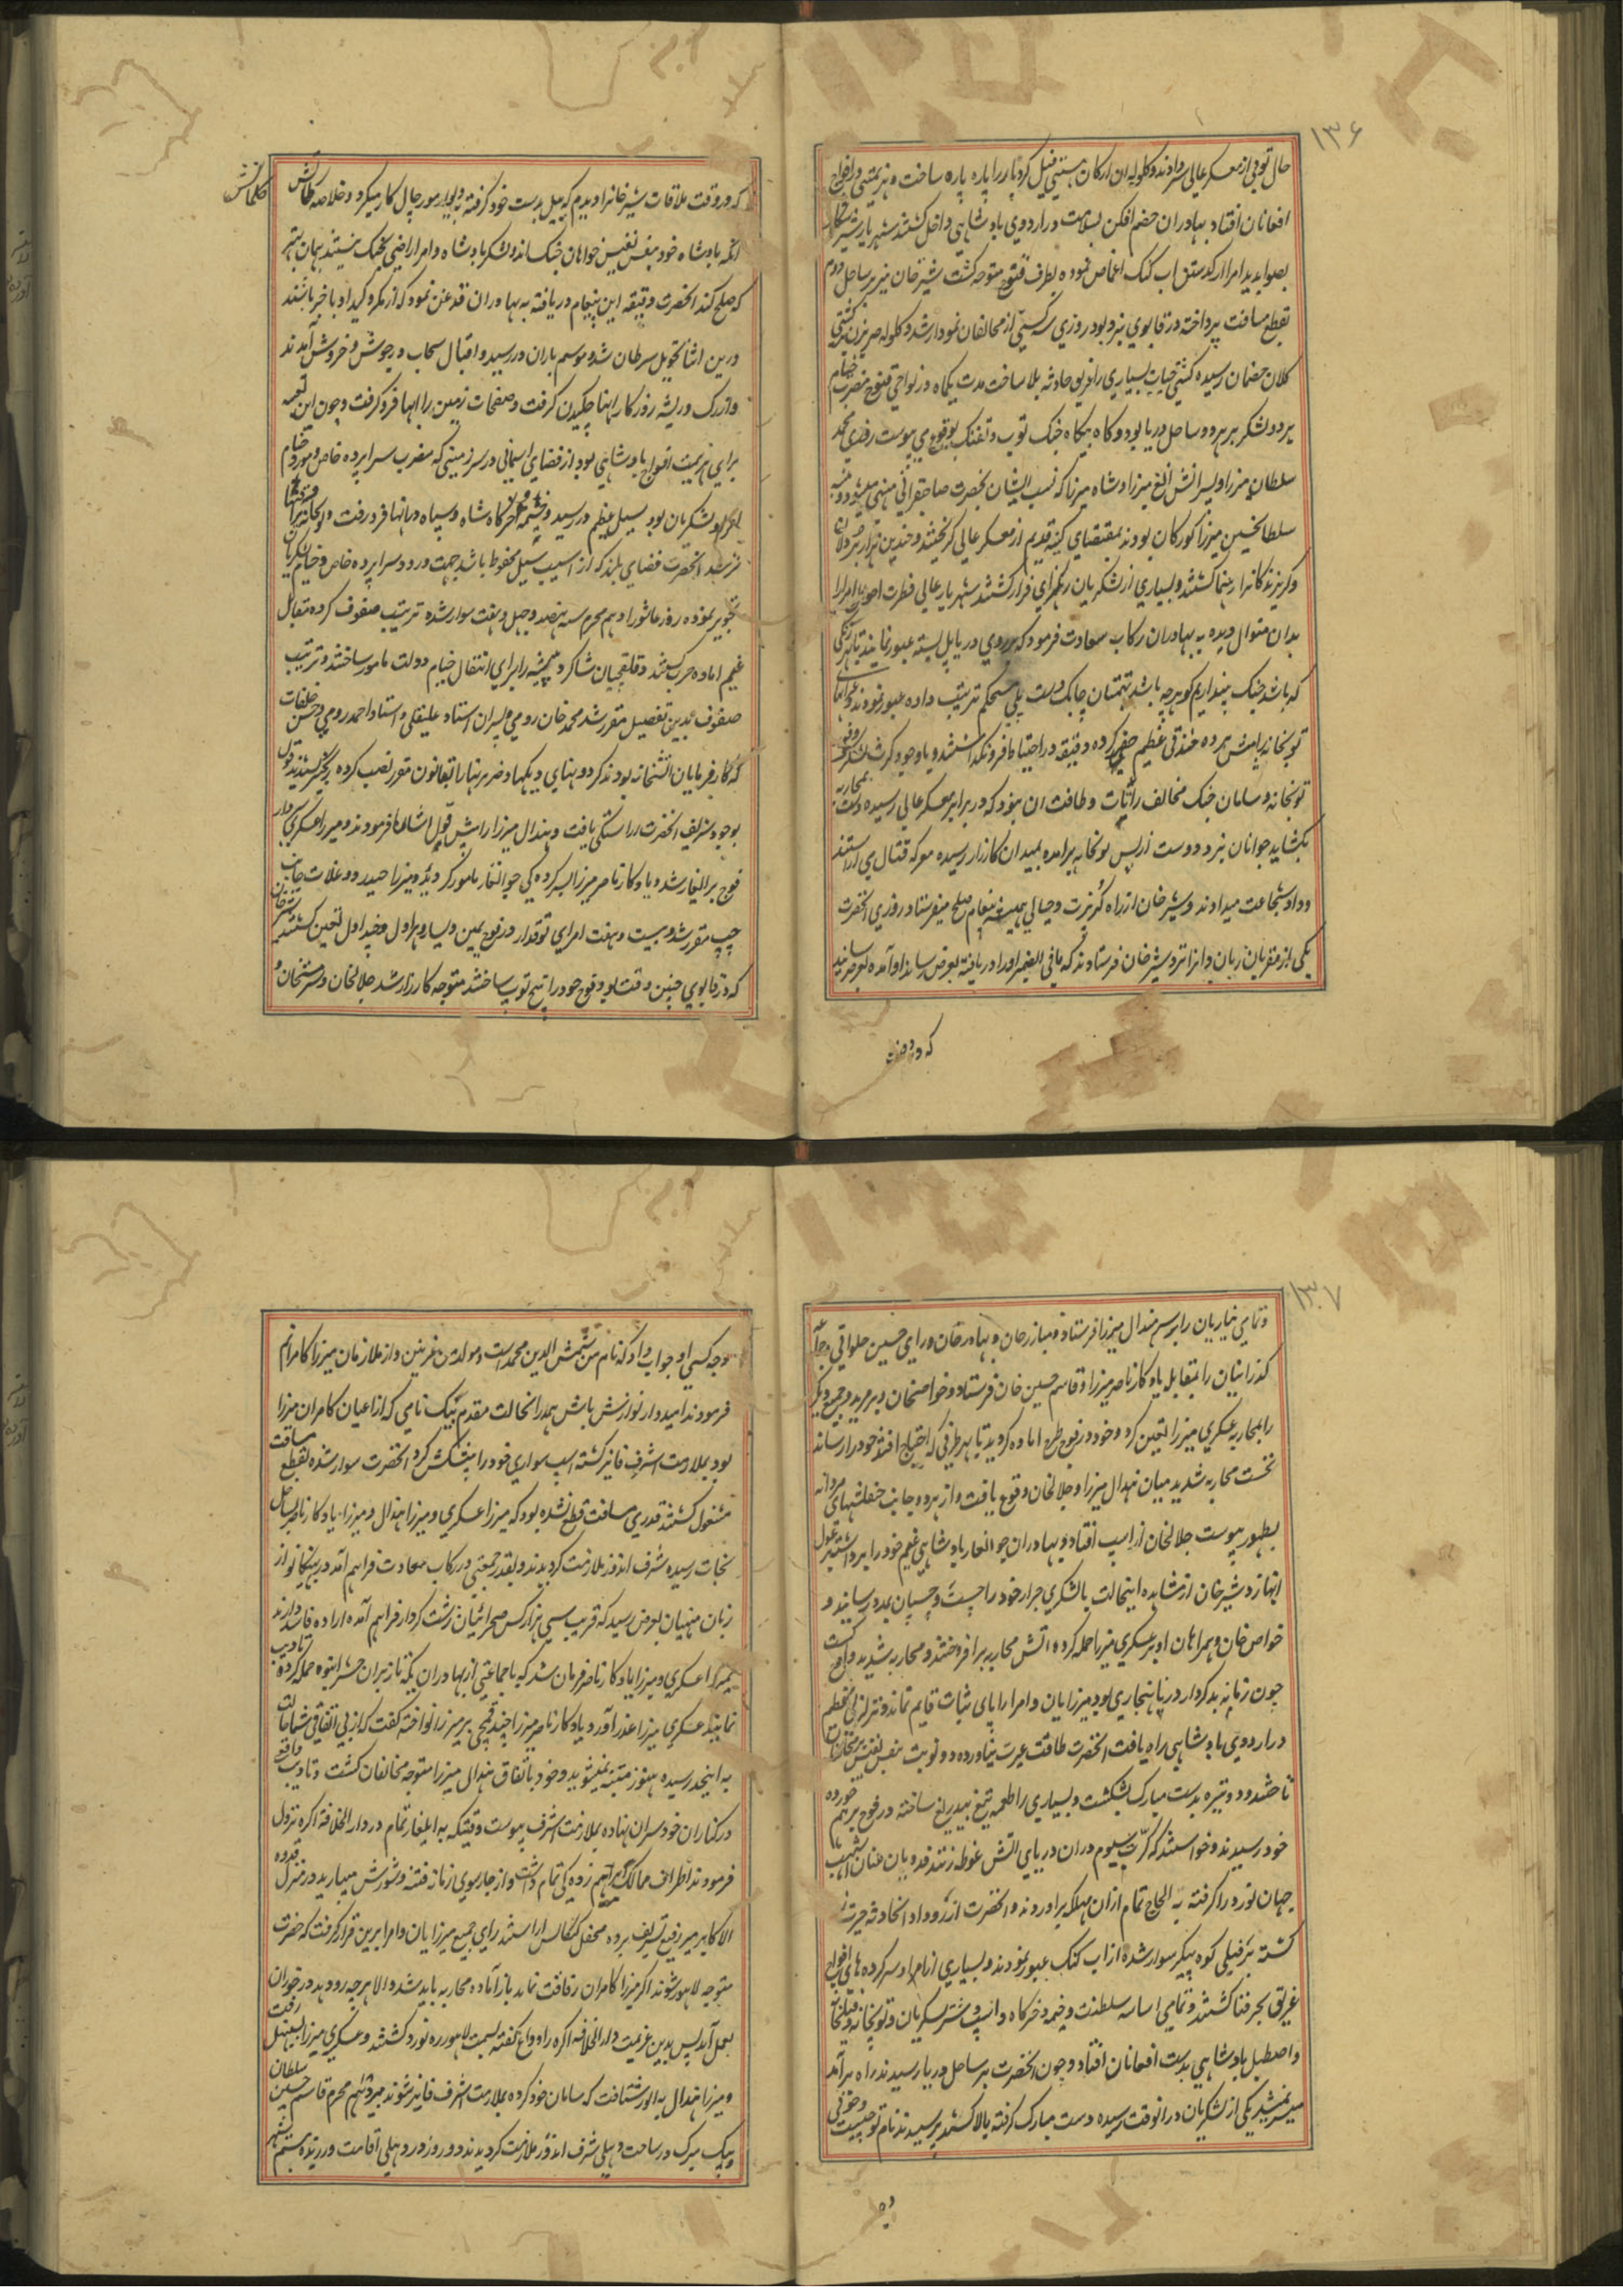 ۱۳۶
حال توپی از معسکر عالی سر دادند و گلوله ان ارکان هستی فیل کرد باررا پاره پاره ساخت و هزیمتی در افواج
افغانان افتاد بهادران خصم افکن بسلامت در اردوی بادشاهی داخل گشتند شهریار
بصوابدید امرا از گذشتن اب کنک اغماض نموده بطرف قنوج متوجه گشت شیر خان نیز بر ساحل دوم
بقطع مسافت پرداخته در قابوی نبرد بود روزی سه کشتی از مخالفان نمودار شد و گلوله
کلان خصمان رسیده کشتی حیات بسیاری را غریق حادثه بلا ساخت مدت یکماه در نواحی قنوج مضرب خیام
هر دو لشکر بر هر دو ساحل دریا بود و گاه بیگاه جنک توپ و تفنک بوقوع می پیوست روزی محمد
سلطان میرزا و پسرانش الغ میرزا و شاه میرزا که نسب ایشان بحضرت صاحبقرانی منتهی میشد و
سلطان حسین میرزا کورکان بودند بمقتضای کینه قدیم از معسکر عالی گریختند و چندین هزار
و گریزندکانرا رهنما گشتند و بسیاری از لشکریان رهگرای فرار گشتند شهریار عالی فطرت احوال امرا را
بدان منوال دیده به بهادران رکاب سعادت فرمود که بر روی دریا پل بسته عبور نمایند تا
که باشد جنک بیندازیم کو هر چه باشد تهمتنان چابک دست پلی مستحکم ترتیب داده عبور نمودند و
توپخانه را پیش برده خندقی عظیم حفر کرده دقیقه در احتیاط فرو نگذاشتند و باوجود کثرت لشکر
توپخانه و سامان جنک مخالف را تاب و طاقت ان نبود که در برابر معسکر عالی رسیده دست بمحاربه
بکشاید جوانان نبرد دوست از پس توپخانه برآمده بمیدان کارزار رسیده معرکه قتال می آراستند
و داد شجاعت میدادند و شیر خان از راه گربزت و حیالی همیشه پیغام صلح میفرستاد روزی انحضرت
یکی از مقربان زبان دانرا نزد شیر خان فرستادند که مافی الضمیر اورا دریافته بعرض رساند او آمده بعرض رسانید
که در وقت
که در وقت ملاقات شیر خانرا دیدم که بیل بدست خود گرفته در مورچال کار میکرد و خلاصه
کلماتش
انکه بادشاه خود بنفس نفیس خواهان جنک اند و لشکر بادشاه و امرا راضی بجنک نیستند همان بهتر
که صلح کند انحضرت دقیقه این پیغام دریافته به بهادران قدغن نمود که از مکر و کید او با خبر باشند
درین اثنا تحویل سرطان شد و موسم باران در رسید و اقبال سحاب در جوش و خروش آمدند
و از رک و ریشه روزگار ابها چکیدن گرفت و صفحات زمین را ابها فرو گرفت و چون این
برای هزیمت افواج بادشاهی بود از قضای اسمانی در سرزمینی که مضرب سراپرده خاص و مورد خیام
امرا و لشکریان بود سیل عظیم در رسید و خیمه و خرگاه شاه و سپاه در ابها فرو رفت و توپخانه
شد انحضرت فضای بلند که از اسیب سیل محفوظ باشد جهت ورود سراپرده خاص و خیام لشکریان
تجویز نموده روز عاشورا دهم محرم سنه نهصد و چهل و هفت سوار شده ترتیب صفوف کرده بمقابل
غنیم اماده حرب گشتند و قلقچیان شاگرد پیشه را برای انتقال خیام دولت مامور ساختند و ترتیب
صفوف بدین تفصیل مقرر شد محمد خان رومی و پسران استاد علیقلی و استاد احمد رومی و حسن خلفات
که کارفرمایان اتشخانه بودند کردونهای دیکها و ضربزنها را بقانون مقرر نصب کرده زنجیر کشیدند و قول
بوجود شریف انحضرت اراستکی یافت و هندال میرزا را پیش قول اشارت فرمودند و میرزا عسکری سردار
فوج برانغار شد و یادکار ناصر میرزا بسرکردگی جوانغار مامور کردید و میرزا حیدر دوغلات جانب
چپ مقرر شد و بیست و هفت امرای توقدار در فوج یمین و یسار و هراول و چنداول تعین کشتند شیر خان
که در قابوی چنین وقت بود فوج خود را پنج توپ ساخته متوجه کارزار شد جلالخان و سرمستخان
۱۳۷
و تمامی نیازیان را بر سر هندال میرزا فرستاد و مبارز خان و بهادر خان و رای حسین جلوانی و جماعه
کذرانیان را بمقابله یادکار ناصر میرزا و قاسم حسین خان فرستاد و خواصخان و برمزید و جمع دیگر
را بمحاربه عسکری میرزا تعین کرد و خود در فوج طرح اماده گردید تا بهر طرفی که احتیاج افتد خود را رساند
نخست محاربه شدید میان هندال میرزا و جلالخان وقوع یافت و از هر دو جانب چپقلشهای مردانه
بظهور پیوست جلالخان از اسپ افتاد و بهادران جوانغار بادشاهی غنیم خود را برداشته بقول
انها زد شیر خان از مشاهده اینحالت با لشکری جرار خود را چست و چسپان بمدد رسانید و
خواص خان و همراهان او بر عسکری میرزا حمله کرده اتش محاربه برافروختند و محاربه شدید واقع گشت
چون زمانه بدکردار در پی ناهنجاری بود میرزایان و امرا را پای ثبات قایم نماند و تزلزلی عظیم
در اردوی بادشاهی راه یافت انحضرت طاقت غیرت نیاورده دو نوبت بنفس نفیس بر مخالفان
تاختند و دو نیزه بدست مبارک بشکست و بسیاری را طعمه تیغ بیدریغ ساخته در فوج برهم خورده
خود رسیدند و خواستند که کرت سیوم دران دریای اتش غوطه زنند فدویان عنان اشهب
جهان نورد را گرفته به الحاح تمام ازان مهلکه براوردند و انحضرت از رو داد انحادثه حیرت زده
گشته بر فیلی کوه پیکر سوار شده از اب کنک عبور نمودند و بسیاری از امرا و سرکرده های افواج
غریق بحر فنا گشتند و تمامی اساسه سلطنت و خیمه و خرگاه و اسپ و شتر لشکریان و توپخانه و فیلخانه
و اصطبل بادشاهی بدست افغانان افتاد و چون انحضرت بر ساحل دریا رسیدند راه برآمد
میسر نمیشد یکی از لشکریان درانوقت رسیده دست مبارک گرفته بالا کشید پرسیدند نام تو چیست و خوفی
وجه کسی او جواب داد که نام من شمس الدین محمد است و مولد من غزنین و از ملازمان میرزا کامرانم
فرمودند امیدوار نوازش باش همدر انحالت مقدم بیک نامی که از اعیان کامران میرزا
بود بملازمت اشرف فایز گشته اسپ سواری خود را پیشکش کرد انحضرت سوار شده بقطع مسافت
مشغول گشتند قدری مسافت قطع نشده بود که میرزا عسکری و میرزا هندال و میرزا یادکار ناصر بساحل
نجات رسیده شرف اندوز ملازمت گردیدند و بقدر جمعیتی در رکاب سعادت فراهم آمد درینجا نیز از
زبان منهیان بعرض رسید که قریب سی هزار کس صحرائیان زشت کردار فراهم آمده اراده فاسد دارند
بمیرزا عسکری و میرزا یادکار ناصر فرمان شد که با جماعتی از بهادران یکه تاز بران حشر انبوه حمله کرده تادیب
نمایند عسکری میرزا عذر آورد یادکار ناصر میرزا چند قمچی بر میرزا نواخته گفت که از بی اتفاقی شما حالت
به اینحد رسیده هنوز متنبه نمیشوید و خود باتفاق هندال میرزا متوجه مخالفان گشت و تادیب وافی
در کنار ان خودسران نهاده بملازمت اشرف پیوست وقتیکه به ایلغار تمام در دار الخلافه اکره نزول
فرمودند اطراف ممالک برهم زدکی تمام داشت و از چارسوی از باز فتنه و شورش میبارید در منزل قدوه
الاکابر میر رفیع تشریف برده محفل کنکاش اراستند رای جمیع میرزایان و امرا برین قرار گرفت که حضرت
متوجه لاهور شوند اگر میرزا کامران رفاقت نماید باز آماده محاربه باید شد والا هر چه رو دهد در خوران
بعمل آید پس بدین عزیمت دار الخلافه اکره راه وداع گفته بسمت لاهور ره نورد گشتند و عسکری میرزا بسنبهل رفت
و میرزا هندال به الور شتافت که سامان خود کرده بملازمت اشرف فایز شوند هژدهم محرم قاسم حسین سلطان
و بیک میرک در ساحت دهلی شرف اندوز ملازمت گردیدند و دو روز در دهلی اقامت ورزیده بیستم شهر